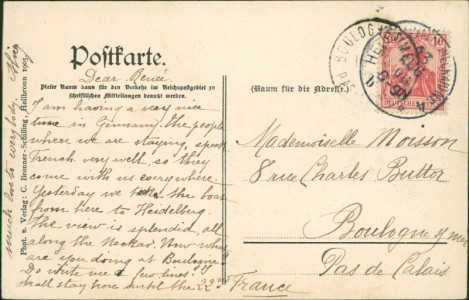 Postkarte.
Dear Renée.
Dieser Raum kann für den Verkehr im Reichspostgebiet zu
schriftlichen Mitteilungen benutzt werden.
(Raum für die Adresse.)
I am having a very nice
time in Germany. The people
where we are staying, speak
French very well, so they
come with us everywhere.
Yesterday we take the boat
from here to Heidelberg.
The view is splendid all
along the Neckar. Now what
are you doing at Boulogne?
Do write me a few lines. I
shall stay here until the 22nd
Mademoiselle Moisson
8 rue Charles Buttor
Boulogne s/ mer
Pas de Calais
France
much love to everybody.
Phot. u. Verlag: C. Benner-Schilling, Heilbronn 1905